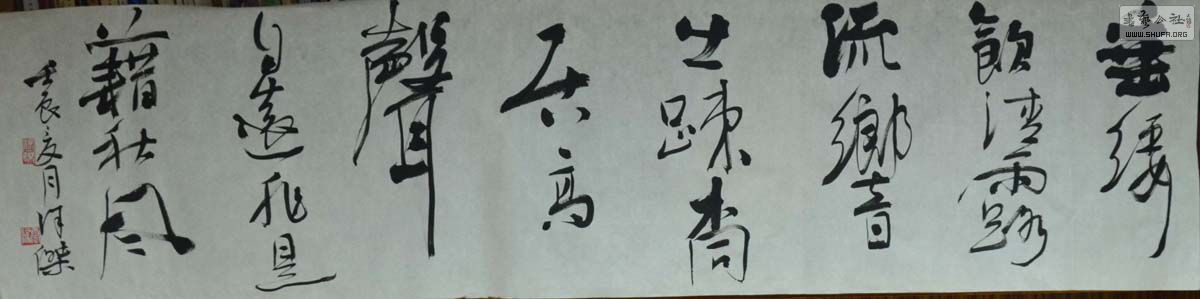 垂緌
飲清露
流響
出踈桐
居高
聲
自遠非是
藉秋風
壬辰夏月
書藝公社
WWW.SHUFA.ORG